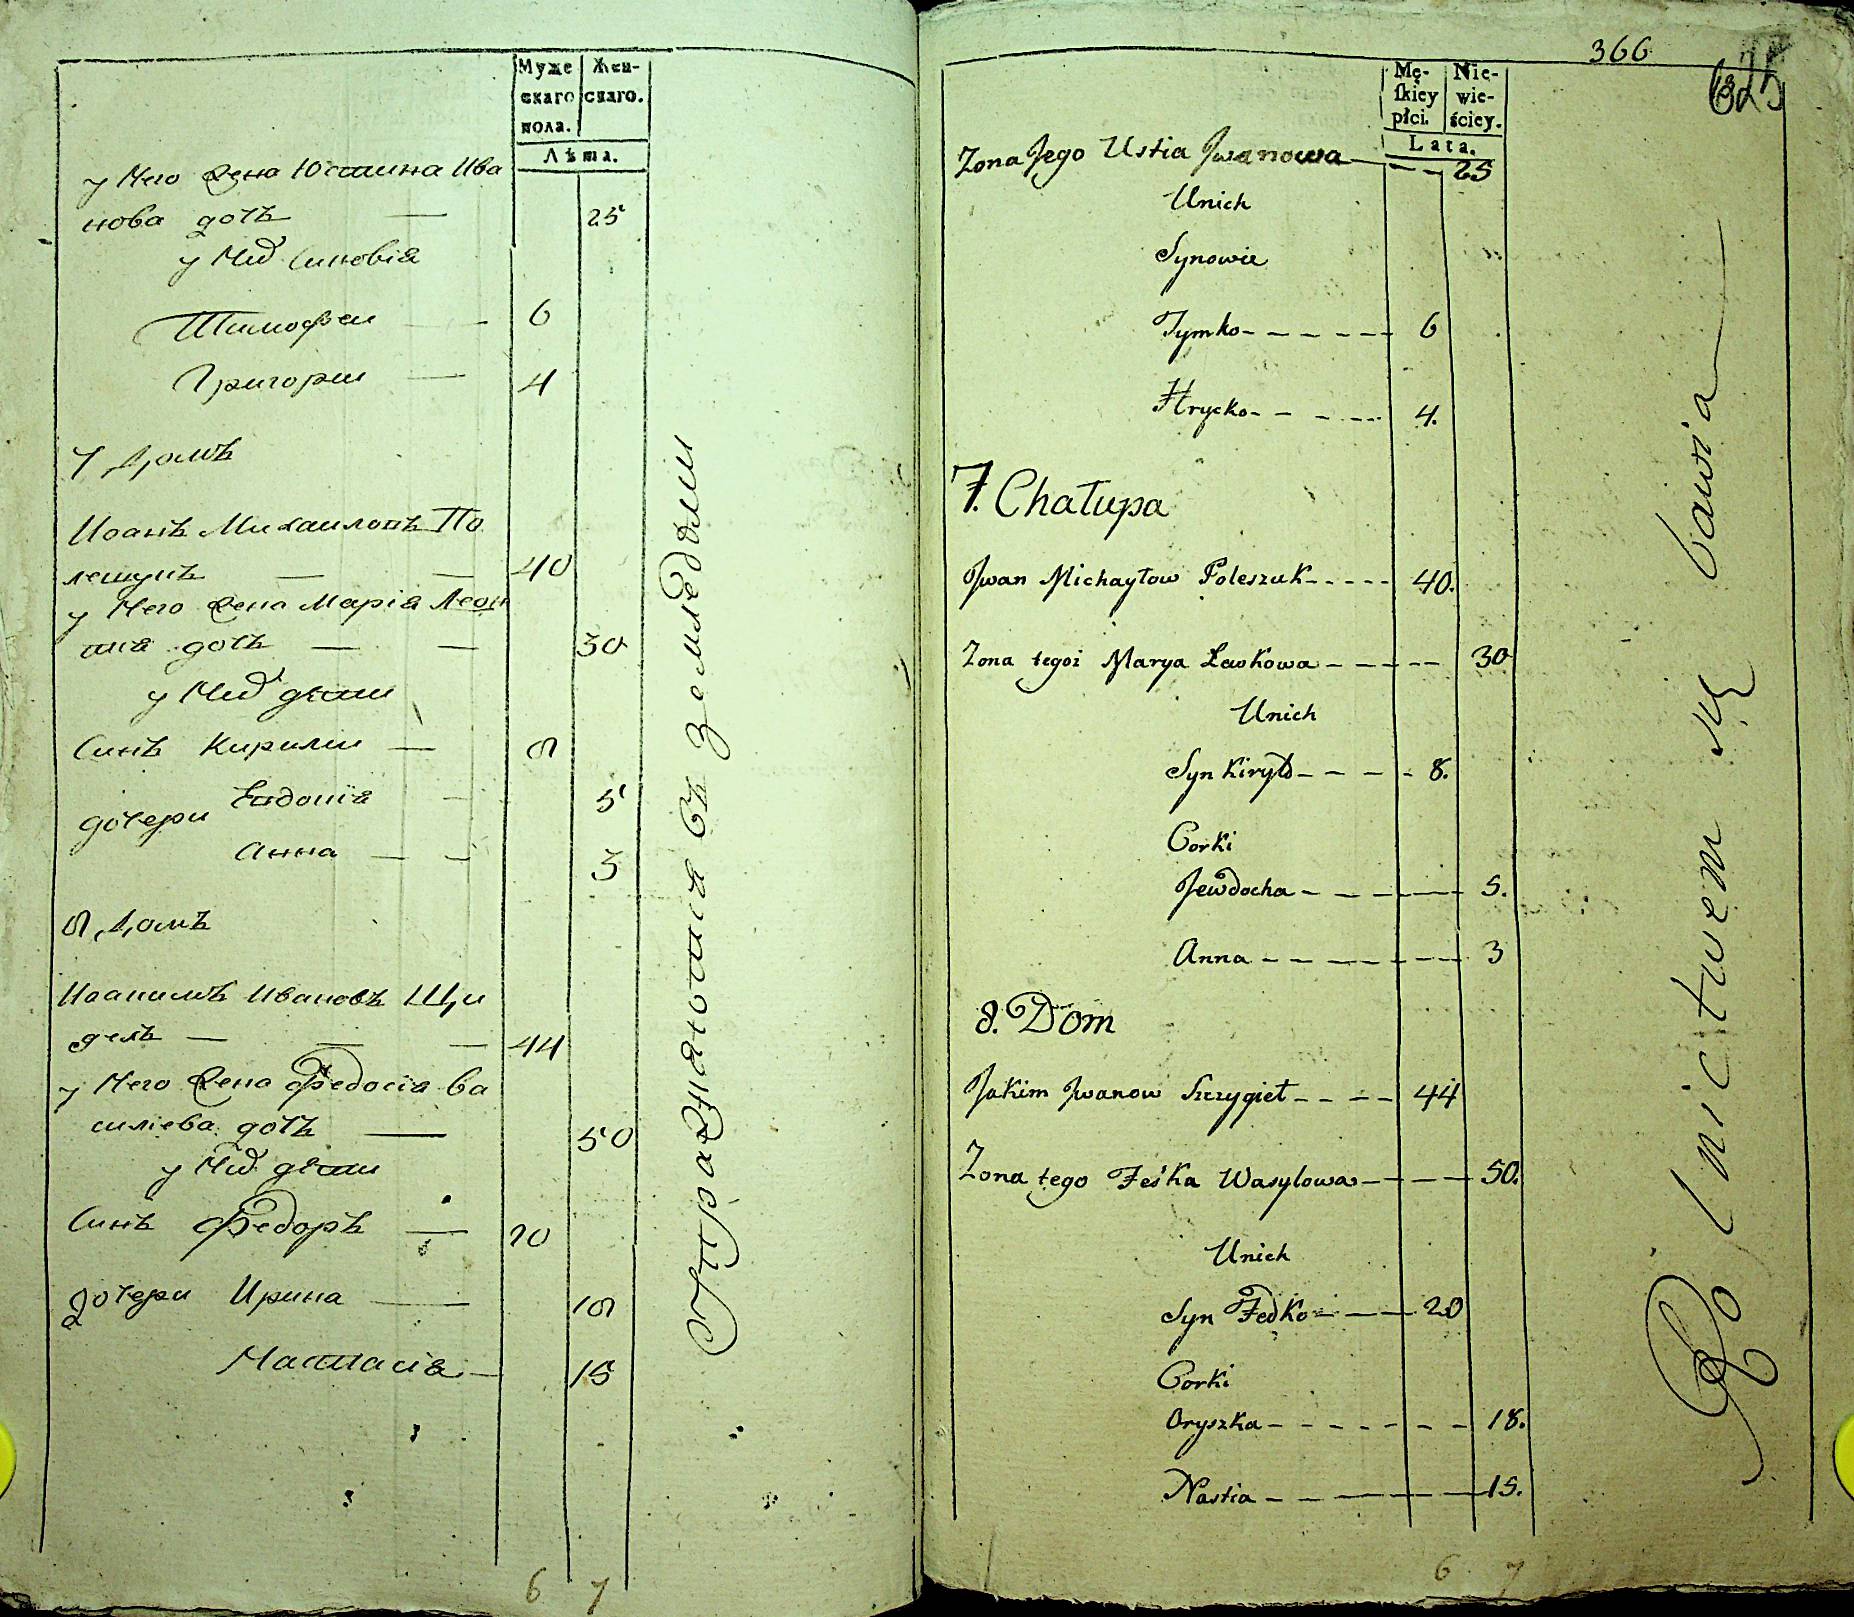 Муже Жен-
скаго скаго.
пола.
Лѣта.
у Него жена Юстина Ива
нова дочь — 25
у Них Синовія
Тимофеи — — 6
Григории — 4
7 Домъ
Иоанъ Михаиловъ По
лещукъ — — 40
у Него жена Марія Леон
тия дочь — — 30
у Них дѣти
Синъ Кирилли — 8
Евдокія — 5
дочери
Анна — — 3
8 Домъ
Иоакимъ Ивановъ Щи
гелъ — — — 44
у Него жена Федосія Ва
силіева дочь — 50
у Них дѣти
Синъ Федоръ — 20
дочери Ирина — 18
Настасія — 15
6 7
Упражняются въ земледѣлии
366
625
Mę- Nie-
skiey wie-
płci. ściey.
Lata.
Zona Jego Ustia Jwanowa — — 25
Unich
Synowie
Tymko - - - - - - 6
Hrycko - - - - - 4.
7. Chałupa
Jwan Michayłow Poleszuk - - - - - 40.
Zona tegoż Marya Lewkowa - - - - - 30
Unich
Syn Kiryło - - - - 8.
Corki
Jewdocha - - - - - - 5.
Anna - - - - - - - 3
8. Dom
Jakim Jwanow Szczygieł - - - - 44
Zona tego Feśka Wasylowa - - - - 50.
Unich
Syn Fedko - - - - 20
Corki
Oryszka - - - - - - - 18.
Nastia - - - - - - 15.
6 7
Rolnictwem się bawia